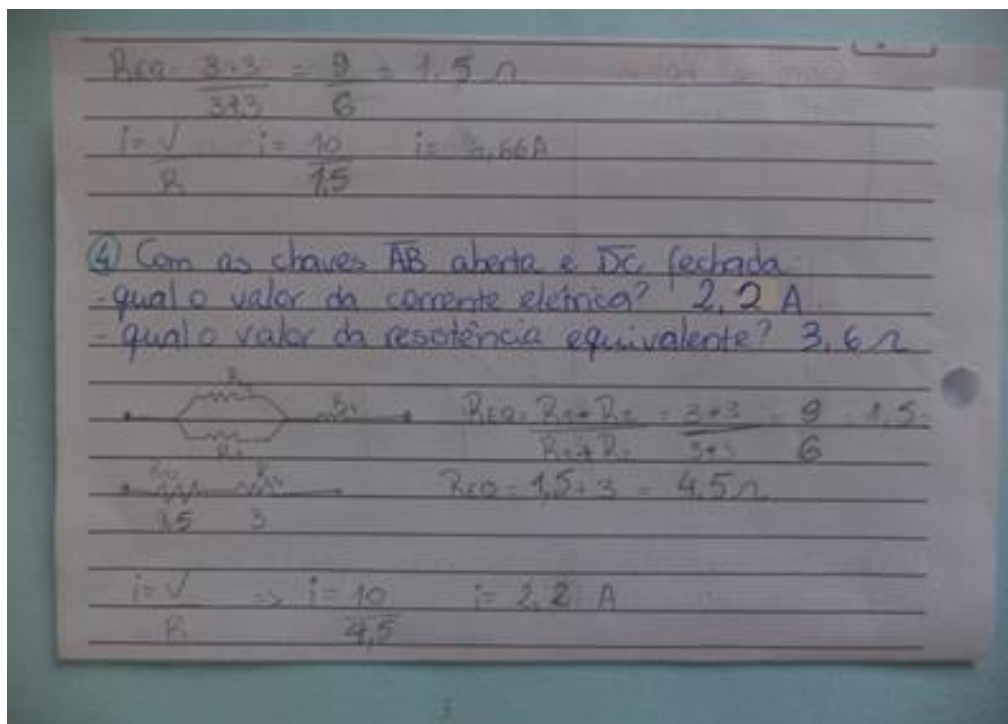 REQ = 3*3 = 9 = 1,5 Ω
3+3 6
i = V i = 10 i = 6,66A
R 1,5
4 Com as chaves AB aberta e DC fechada
- qual o valor da corrente elétrica? 2,2 A.
- qual o valor da resistência equivalente? 3,6 Ω
REQ = R1*R2 = 3*3 = 9 = 1,5
R1+R2 3+3 6
REQ = 1,5+3 = 4,5 Ω
1,5 3
i = V => i = 10 i = 2,2 A
R 4,5